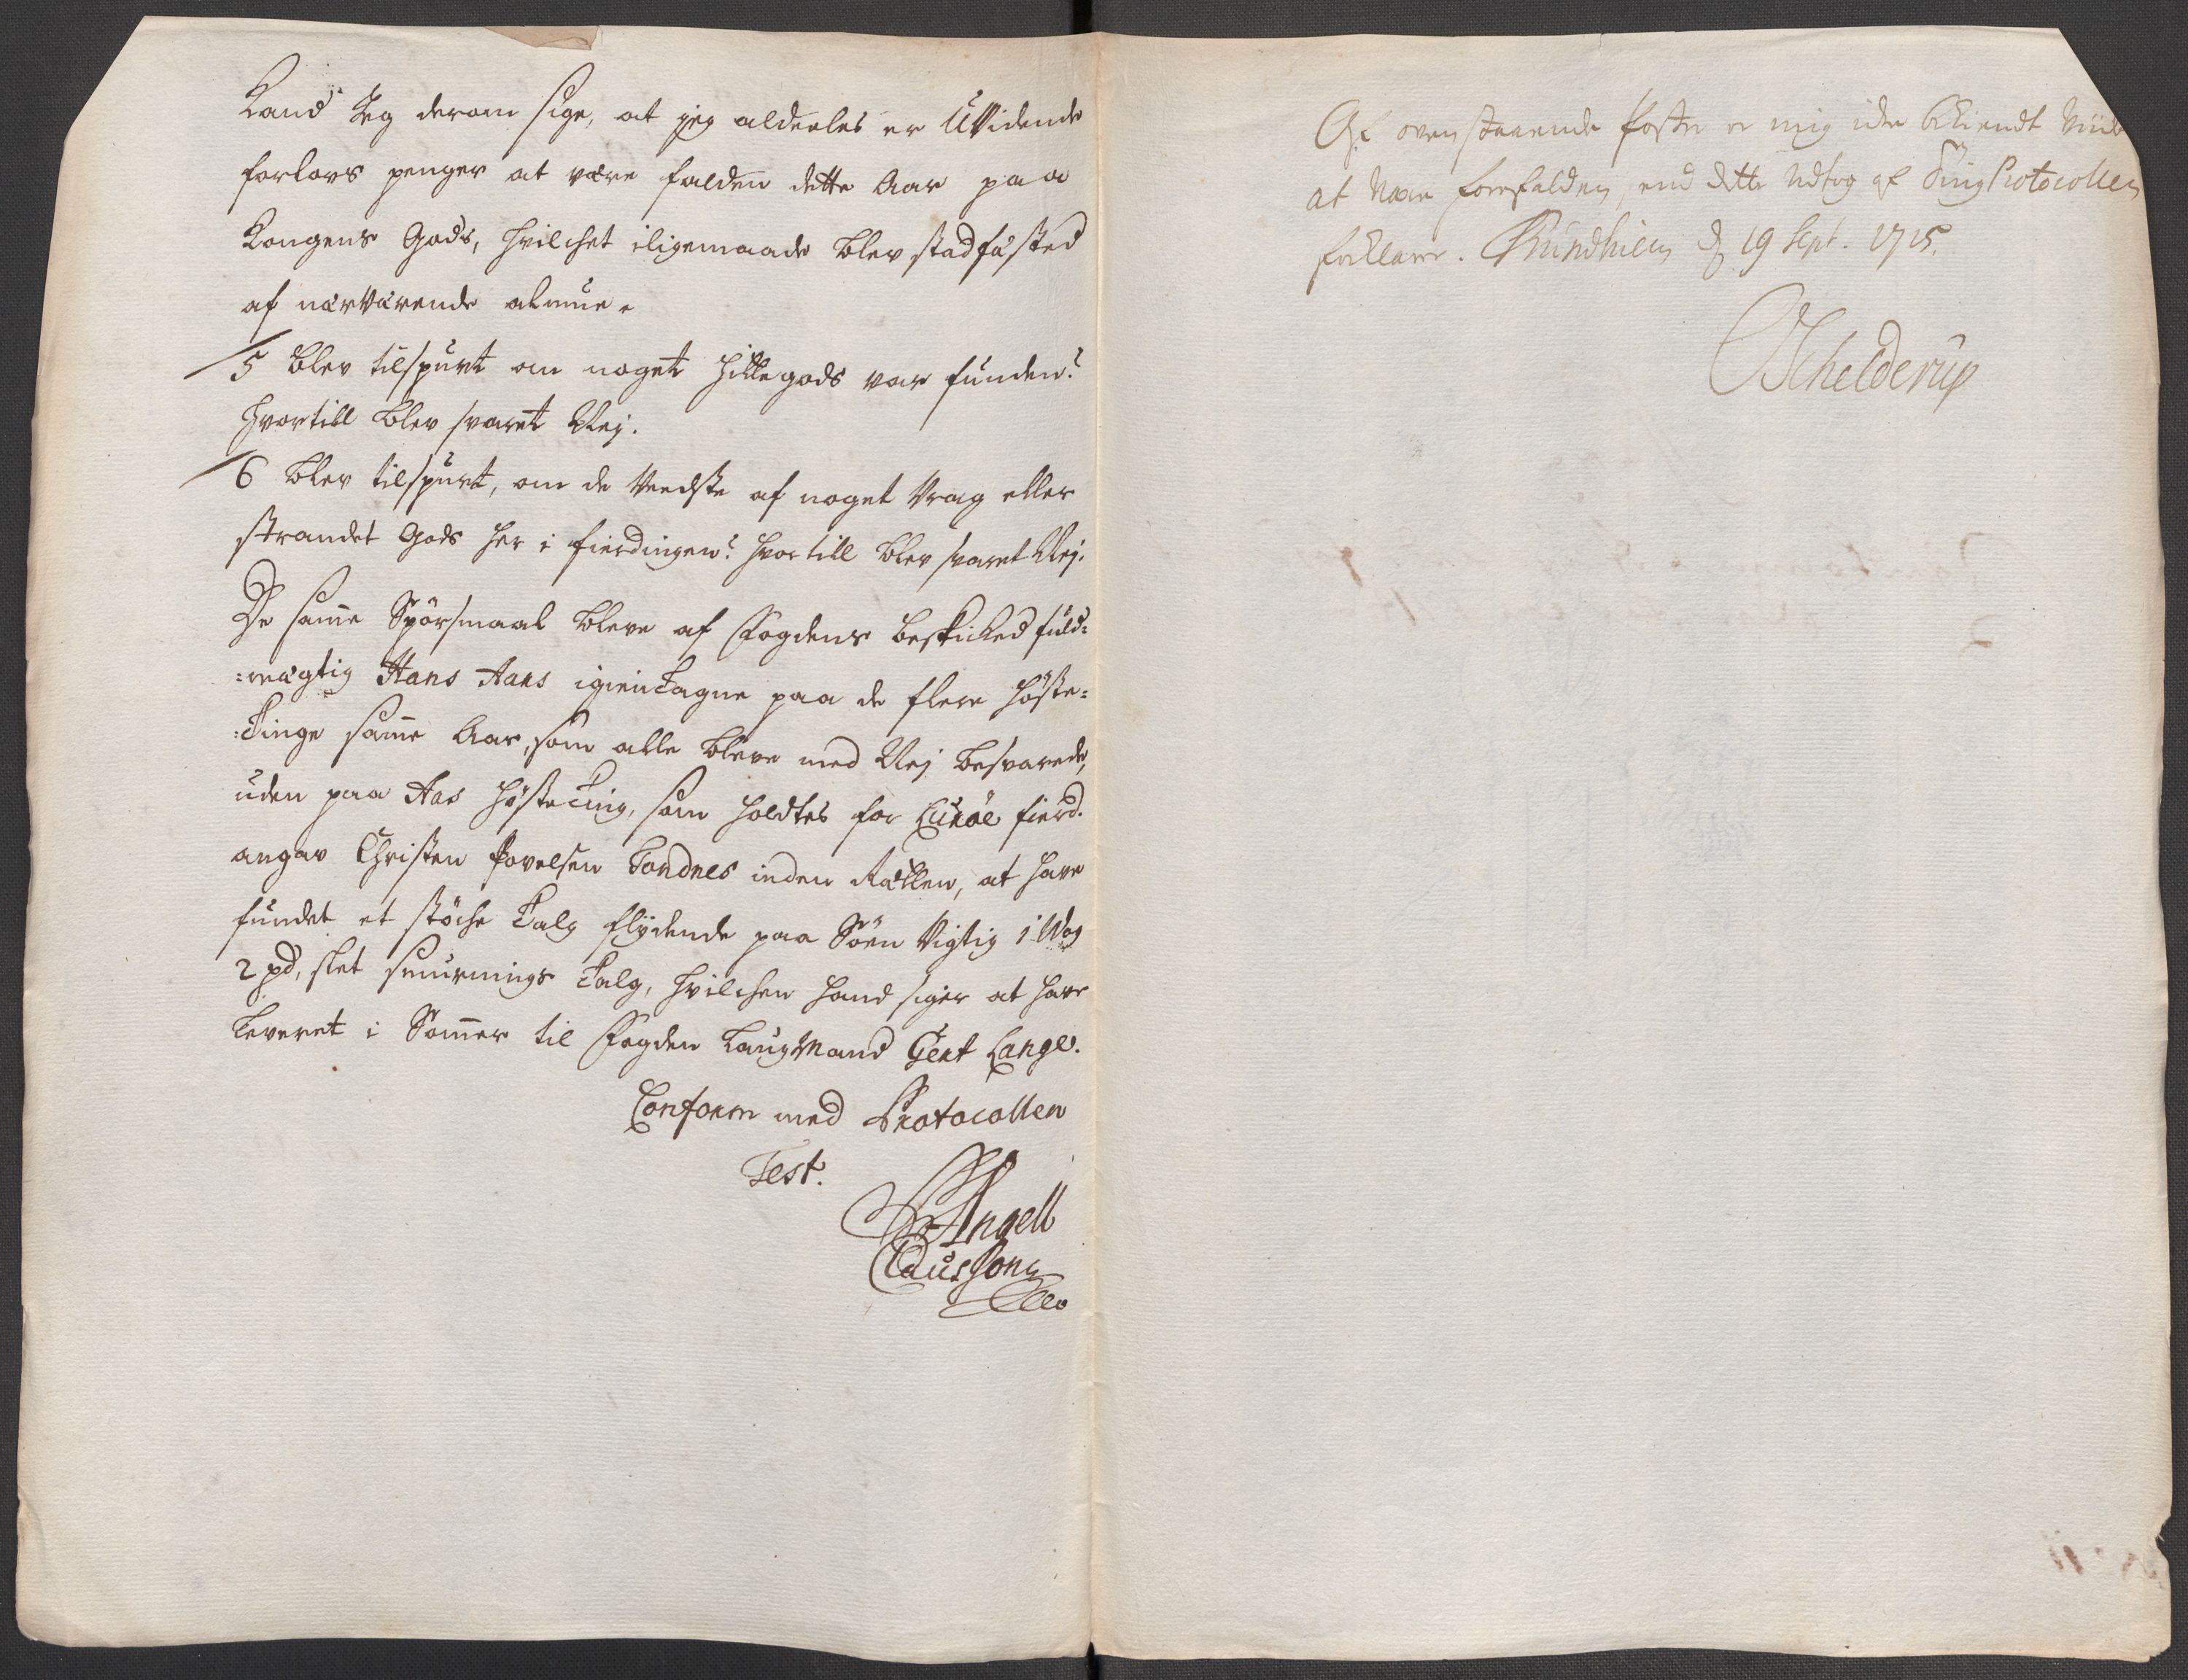 Kand Jeg derom sige, at jeg aldeeles er UVidende
forlovs penger at være falden dette Aar paa
Kongens Gods, hvilchet iligemaade blev stadfæsted
af nærværende almue.
5 blev tilspurt om noget hittegods var funden?
hvortill blev svaret Nej.
6 blev tilspurt, om de Veedste af noget Vrag eller
strandet Gods her i fierdingen? hvortill blev svaret Nej.
De samme Spörsmaal bleve af Fogdens beskicked fuld-
mægtig Hans igientagne paa de flere höste-
Tinge samme Aar, som alle bleve med Nej besvarede,
uden paa Aas hösteting, som holdtes for Luröe fierd.
angav Christen Povelsen Tondnes inden Rætten, at have
fundet et stöche Talg flydende paa Söen Vigtig 1 Wog
2 pd, slet smurnings Talg, hvilchen hand siger at have
leveret i Sommer til Fogden LaugMand Gert Lange.
Conform med Protocollen
Test.
Angell
Claussøn
Af ovenstaaende poster er mig icke bekiendt viider
at være forefalden, end dette udtog af TingProtocollen
forklarer. Trundhiem d 19 Sept. 1715.
Schelderup